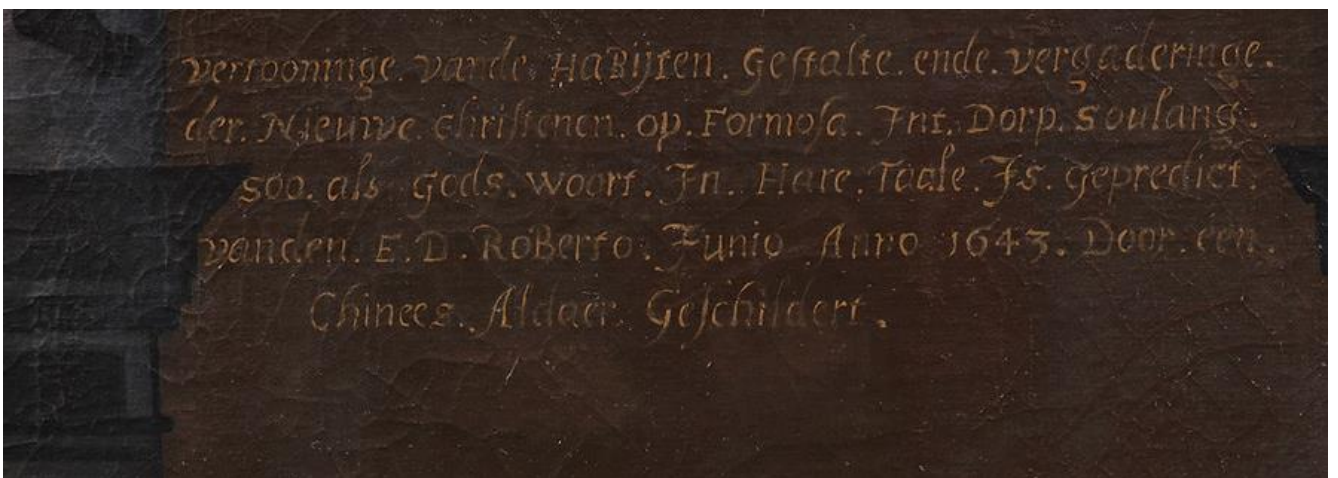 vertooninge. vande. HaBijten. Gestalte. ende. vergaderinge.
der. Nieuwe. Christenen. op. Formosa. Int. Dorp. Soulang.
soo. als gods. woort. In. Hare. Taale. Is. gepredict.
vanden. E. D. RoBerto. Junio Anno 1643. Door. een.
Chinees. Aldaer. Geschildert.